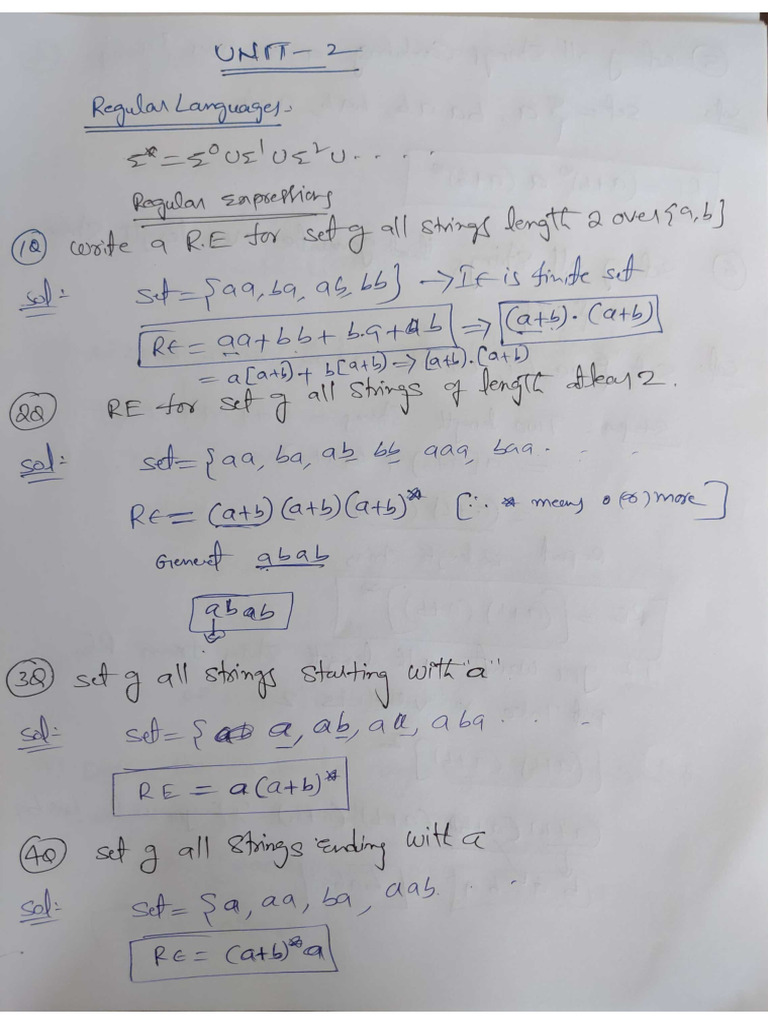 UNIT-2
Regular Languages:
Σ* = Σ⁰ ∪ Σ¹ ∪ Σ² ∪ . . . .
Regular Expressions
1Q write a R.E for set of all strings length 2 over {a,b}
sol:- set = {aa, ba, ab, bb} → It is finite set
RE = aa+bb+b.a+ab ⇒ (a+b).(a+b)
= a[a+b]+b[a+b] → (a+b).(a+b)
2Q RE for set of all strings of length atleast 2.
sol:- set = {aa, ba, ab, bb, aaa, baa . . .
RE = (a+b)(a+b)(a+b)* [∵ * means 0 (or) more]
General abab
abab
3Q set of all strings starting with "a"
sol:- set = { a, ab, aa, aba . . -
RE = a(a+b)*
4Q set of all strings ending with a
sol:- set = {a, aa, ba, aab. . . .
RE = (a+b)*a